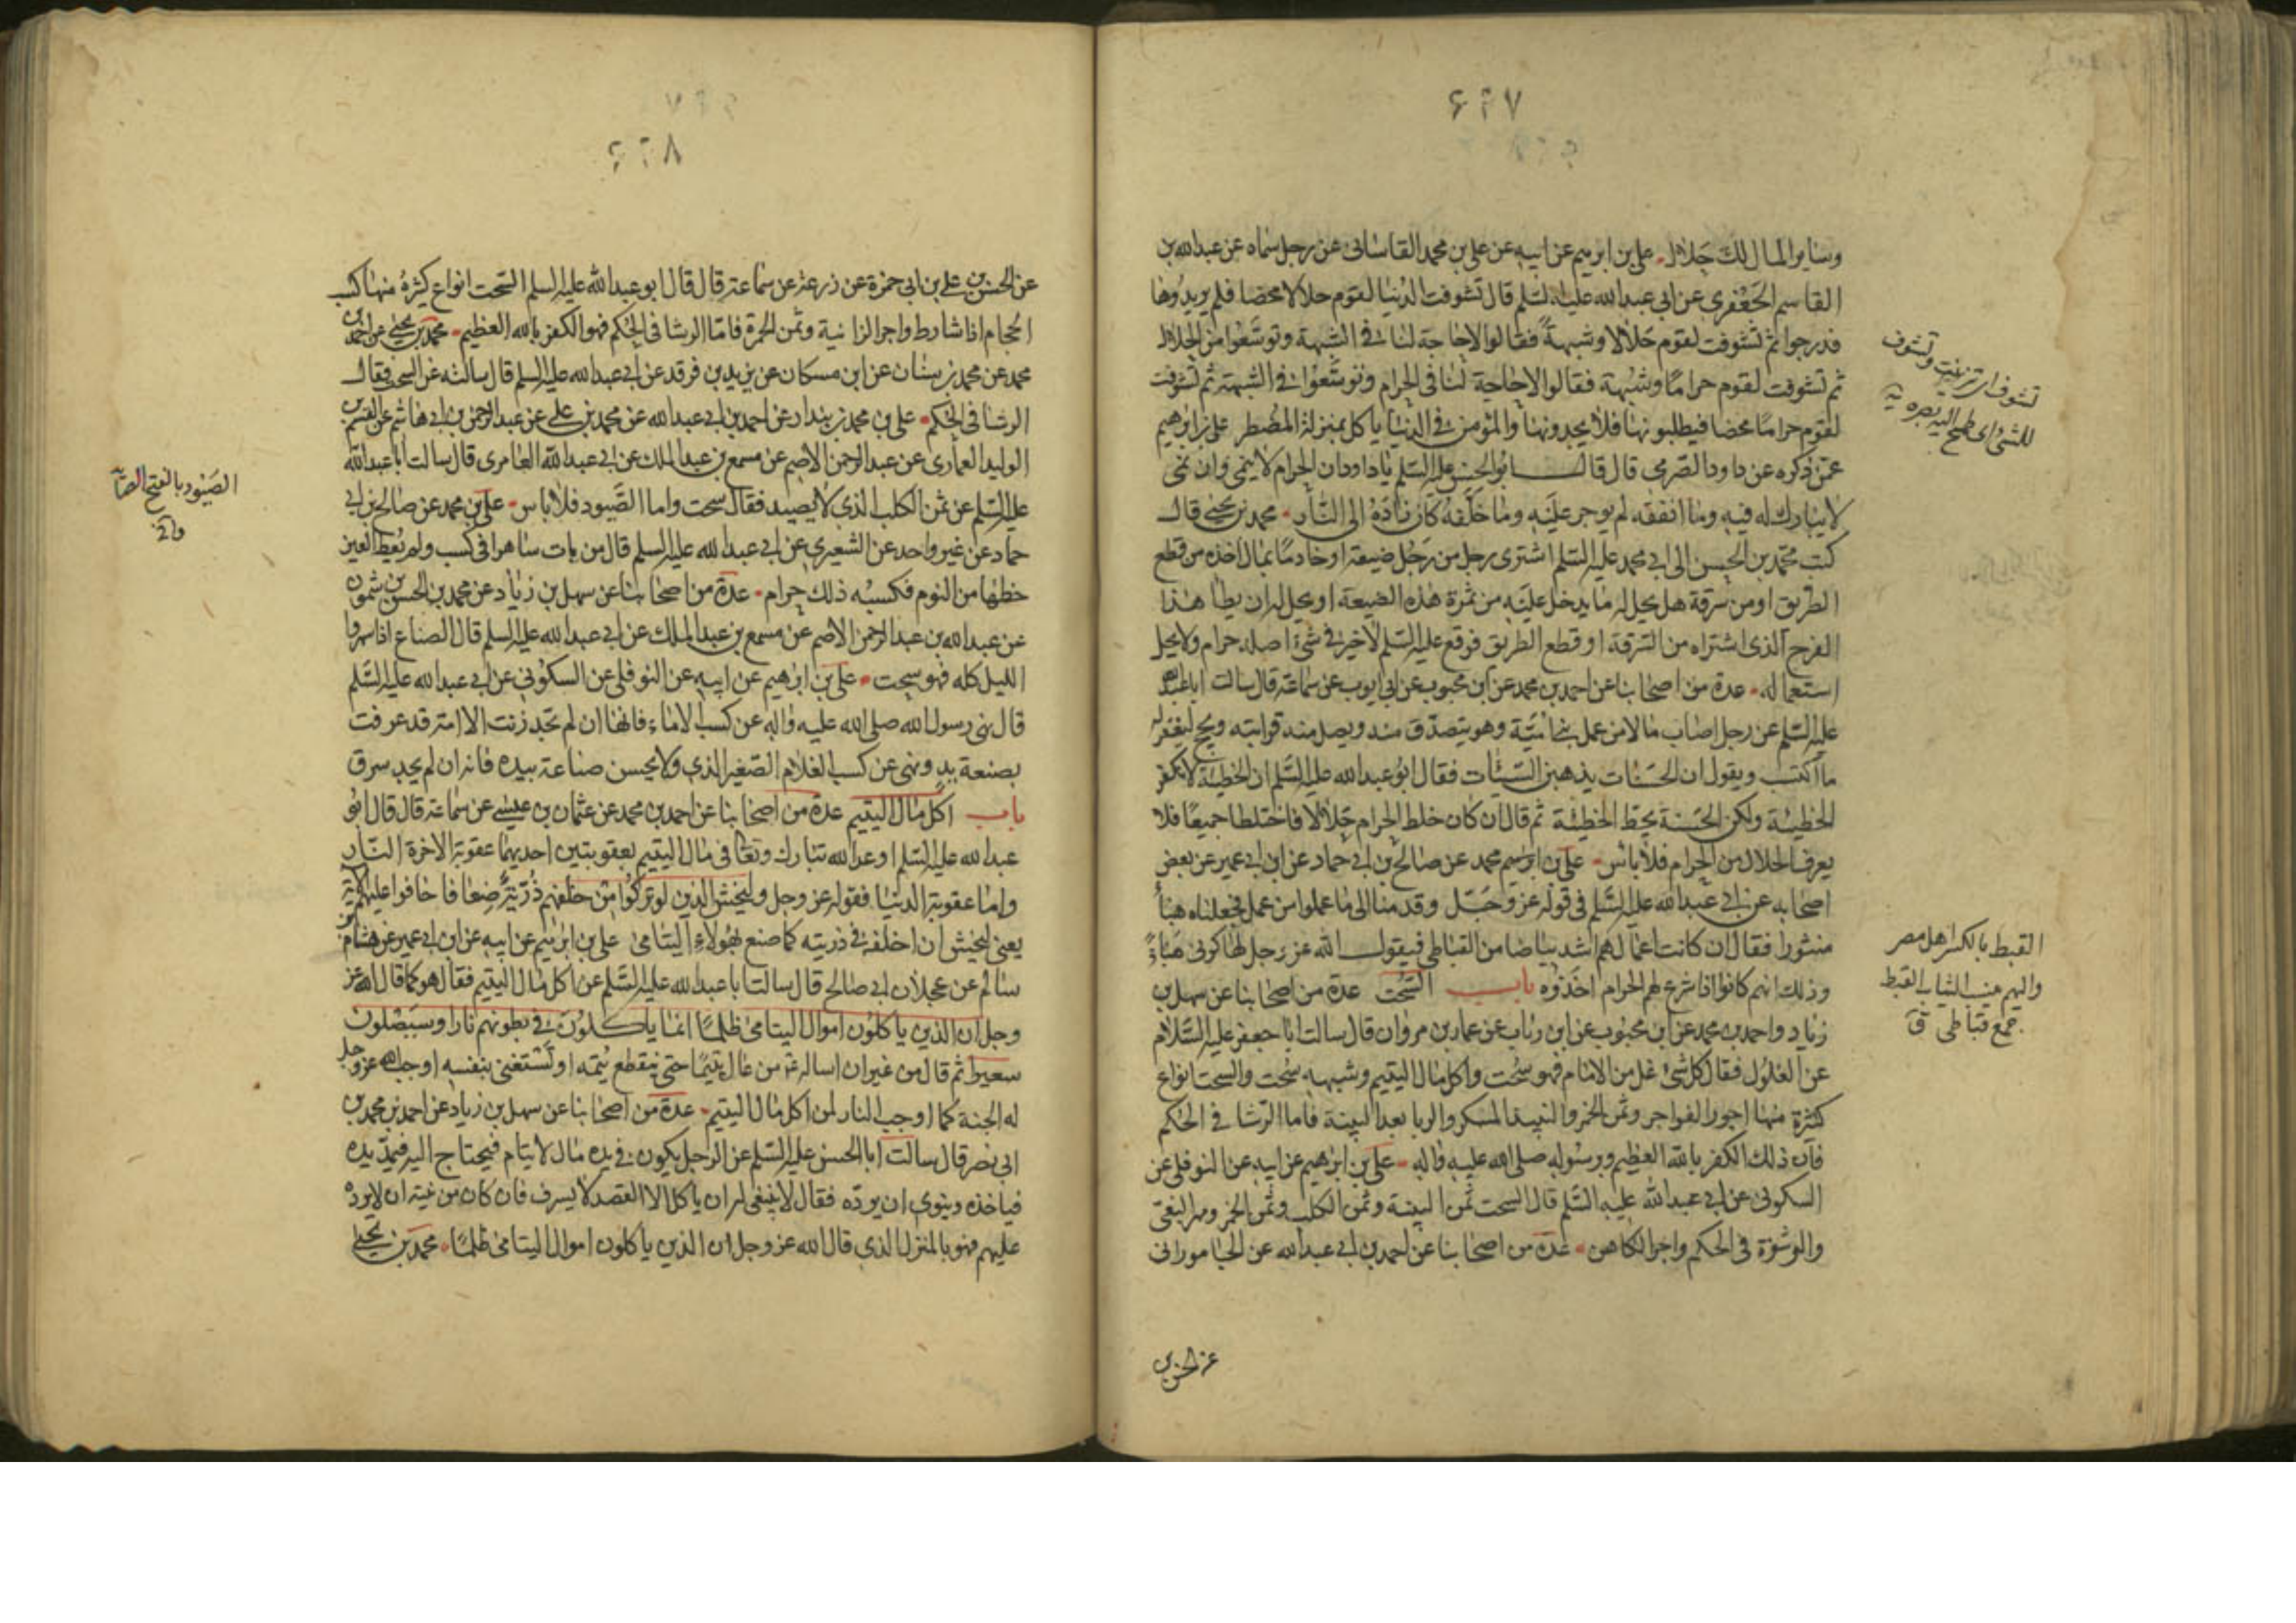 ۶۲۷
وساير المال لك حلال علي بن ابرهيم عن ابيه عن علي بن محمد القاساني عن رجل سماه عن عبدالله بن
القاسم الجعفري عن ابي عبدالله عليه السلم قال تشوفت الدنيا لقوم حلالا محضا فلم يريدوها
فدرجوا ثم تشوفت لقوم حلالا وشبهة فقالوا لا حاجة لنا في الشبهة وتوسعوا من الحلال
ثم تشوفت لقوم حراما وشبهة فقالوا لا حاجة لنا في الحرام وتوسعوا في الشبهة ثم تشوفت
لقوم حراما محضا فيطلبونها فلا يجدونها والمؤمن في الدنيا ياكل بمنزلة المضطر علي بن ابرهيم
عمن ذكره عن داود الصرمي قال قال ابو الحسن عليه السلم يا داود ان الحرام لا ينمي وان نمى
لا يبارك له فيه وما انفقه لم يوجر عليه وما خلفه كان زاده الى النار محمد بن يحيى قال
كتب محمد بن الحسن الى ابي محمد عليه السلم اشترى رجل من رجل ضيعة او خادما بمال اخذه من قطع
الطريق او من سرقة هل يحل له ما يدخل عليه من ثمرة هذه الضيعة او يحل له ان يطا هذا
الفرج الذي اشتراه من السرقة او قطع الطريق فوقع عليه السلم لا خير في شئ اصله حرام ولا يحل
استعماله عدة من اصحابنا عن احمد بن محمد عن ابن محبوب عن ابي ايوب عن سماعة قال سالت ابا عبد الله
عليه السلم عن رجل اصاب مالا من عمل بني امية وهو يتصدق منه ويصل منه قرابته ويحج ليغفر له
ما اكتسب ويقول ان الحسنات يذهبن السيئات فقال ابو عبدالله عليه السلم ان الخطيئة لا تكفر
الخطيئة ولكن الحسنة تحط الخطيئة ثم قال ان كان خلط الحرام حلالا فاختلطا جميعا فلا
يعرف الحلال من الحرام فلا باس علي بن ابرهيم محمد عن صالح بن ابي حماد عن ابن ابي عمير عن بعض
اصحابه عن ابي عبدالله عليه السلم في قوله عز وجل وقدمنا الى ما عملوا من عمل فجعلناه هباء
منثورا فقال ان كانت اعمالهم اشد بياضا من القباطي فيقول الله عز وجل لها كوني هباء
وذلك انهم كانوا اذا شرع لهم الحرام اخذوه باب السحت عدة من اصحابنا عن سهل بن
زياد واحمد بن محمد عن ابن محبوب عن ابن رئاب عن عمار بن مروان قال سالت ابا جعفر عليه السلام
عن الغلول فقال كل شئ غل من الامام فهو سحت واكل مال اليتيم وشبهه سحت والسحت انواع
كثيرة منها اجور الفواجر وثمن الخمر والنبيذ المسكر والربا بعد البينة فاما الرشا في الحكم
فان ذلك الكفر بالله العظيم وبرسوله صلى الله عليه واله علي بن ابرهيم عن ابيه عن النوفلي عن
السكوني عن ابي عبدالله عليه السلم قال السحت ثمن الميتة وثمن الكلب وثمن الخمر ومهر البغي
والرشوة في الحكم واجر الكاهن عدة من اصحابنا عن احمد بن ابي عبدالله عن الجاموراني
عن الحسن بن
تشوف اي تزينت وتشوف
للشئ اي طمح اليه بصره
القبط بالكسر اهل مصر
واليهم ينسب الثياب القبط
جمع قباطي ق
۶۲۸
عن الحسن بن علي بن ابي حمزة عن زرعة عن سماعة قال قال ابو عبدالله عليه السلم السحت انواع كثيرة منها كسب
الحجام اذا شارط واجر الزانية وثمن الخمرة فاما الرشا في الحكم فهو الكفر بالله العظيم محمد بن يحيى عن احمد بن
محمد عن محمد بن سنان عن ابن مسكان عن يزيد بن فرقد عن ابي عبدالله عليه السلم قال سالته عن السحت فقال
الرشا في الحكم علي بن محمد بن بندار عن احمد بن ابي عبدالله عن محمد بن علي عن عبد الرحمن بن ابي هاشم عن القسم بن
الوليد العماري عن عبد الرحمن الاصم عن مسمع بن عبد الملك عن ابي عبدالله العامري قال سالت ابا عبدالله
عليه السلم عن ثمن الكلب الذي لا يصيد فقال سحت واما الصيود فلا باس علي بن محمد عن صالح بن ابي
حماد عن غير واحد عن الشعيري عن ابي عبدالله عليه السلم قال من بات ساهرا في كسب ولم يعط العين
حظها من النوم فكسبه ذلك حرام عدة من اصحابنا عن سهل بن زياد عن محمد بن الحسن بن شمون
عن عبدالله بن عبد الرحمن الاصم عن مسمع بن عبد الملك عن ابي عبدالله عليه السلم قال الصناع اذا سهروا
الليل كله فهو سحت علي بن ابرهيم عن ابيه عن النوفلي عن السكوني عن ابي عبدالله عليه السلم
قال نهى رسول الله صلى الله عليه واله عن كسب الاماء فانها ان لم تجد زنت الا امة قد عرفت
بصنعة يد ونهى عن كسب الغلام الصغير الذي ولا يحسن صناعة بيده فانه ان لم يجد سرق
باب اكل مال اليتيم عدة من اصحابنا عن احمد بن محمد عن عثمان بن عيسى عن سماعة قال قال ابو
عبدالله عليه السلم اوعد الله تبارك وتعا في مال اليتيم بعقوبتين احديهما عقوبة الاخرة النار
واما عقوبة الدنيا فقوله عز وجل وليخش الذين لو تركوا من خلفهم ذرية ضعافا خافوا عليهم الاية
يعني ليخش ان اخلفه في ذريته كما صنع بهولاء اليتامى علي بن ابرهيم عن ابيه عن ابن ابي عمير عن هشام بن
سالم عن عجلان ابي صالح قال سالت ابا عبدالله عليه السلم عن اكل مال اليتيم فقال هو كما قال الله عز
وجل ان الذين ياكلون اموال اليتامى ظلما انما ياكلون في بطونهم نارا وسيصلون
سعيرا ثم قال من غير ان اساله من عال يتيما حتى ينقطع يتمه او تستغني بنفسه اوجب الله عز وجل
له الجنة كما اوجب النار لمن اكل مال اليتيم عدة من اصحابنا عن سهل بن زياد عن احمد بن محمد بن
ابي نصر قال سالت ابا الحسن عليه السلم عن الرجل يكون في يده مال لايتام فيحتاج اليه فيمد يده
فياخذه وينوي ان يرده فقال لا ينبغي له ان ياكل الا القصد لا يسرف فان كان من نيته ان لا يرده
عليهم فهو بالمنزل الذي قال الله عز وجل ان الذين ياكلون اموال اليتامى ظلما محمد بن يحيى
الصيود بالفتح الصياد